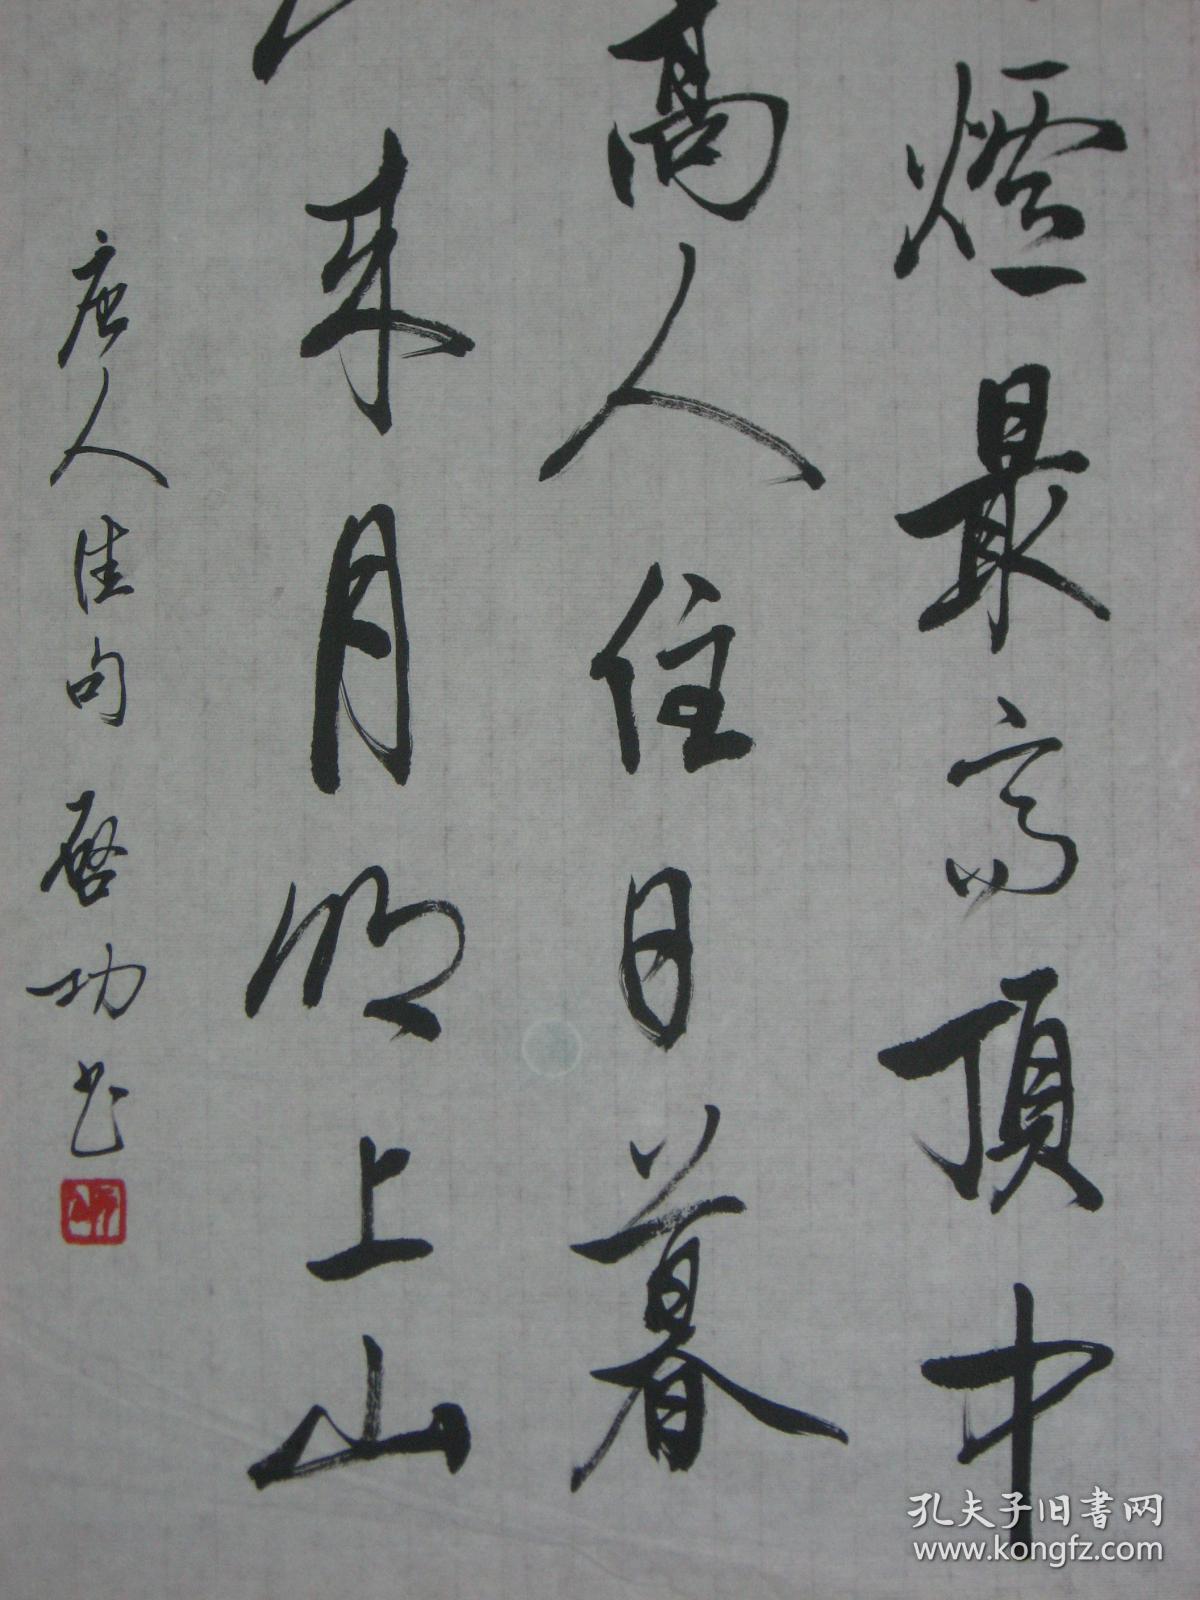 燈最高頂中
高人住日暮
來月明上山
唐人佳句 啓功书
孔夫子旧書网
www.kongfz.com